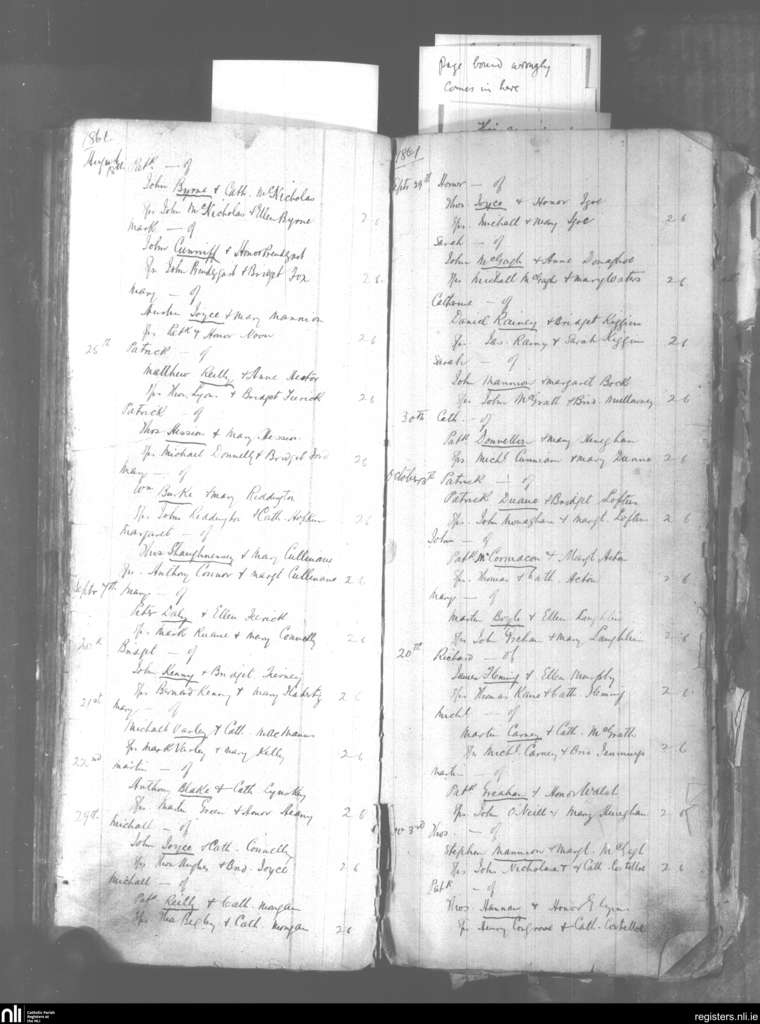 page bound wrongly
comes in here
1861
August
Patk — of
John Byrne & Cath. McNicholas
Sps John McNicholas & Ellen Byrne 2 6
Mark — of
John Cunniff & Honor Prendergast
Sps John Prendergast & Bridget Fox 2 6
Mary — of
Austin Joyce & Mary Mannion
Sps Patk & Honor Noon 2 6
25th Patrick — of
Matthew Reilly & Anne Nestor
Sps Thos Lyons & Bridget Fierick 2 6
Patrick — of
Thos Hession & Mary Hession
Sps Michael Donnelly & Bridget 2 6
Mary — of
Wm Burke & Mary Reddington
Sps John Reddington & Cath. Hopkins 2 6
Margaret — of
Thos Shaughnessy & Mary Cullinane
Sps Anthony Connor & Margt Cullinane 2 6
Septbr 7th Mary — of
Peter Daly & Ellen Fierick
Sps Mark Ruane & Mary Connelly 2 6
20th Bridget — of
John Kenny & Bridget Tierney
Sps Bernard Kenny & Mary Flaherty 2 6
21st Mary — of
Michael Varley & Cath. MacManus
Sps Mark Varley & Mary Kelly 2 6
22nd Martin — of
Anthony Blake & Cath.
Sps Martin Green & Honor Heany 2 6
29th Michael — of
John Joyce & Cath. Connelly
Sps Thos Hughes & Brid. Joyce 2 6
Michael — of
Patk Reilly & Cath. Morgan
Sps Thos Begley & Cath. Morgan 2 6
1861
Septr 29th Honor — of
Thos Joyce & Honor Igoe
Sps Michall & Mary Igoe 2 6
Sarah — of
John McGagh & Anne Donaghoe
Sps Michall McGagh & Mary Waters 2 6
Catherine — of
Daniel Rainey & Bridget Kiggins
Sps Jas. Rainy & Sarah Kiggins 2 6
Sarah — of
John Mannion & Margaret Bock
Sps John McGrath & Brid. Mullarney 2 6
30th Cath. — of
Patk Donnellan & Mary Heneghan
Sps Michl Cunnean & Mary Duane 2 6
October Patrick — of
Patrick Duane & Bridget Loftus
Sps John Monaghan & Margt. Loftus 2 6
John — of
Patk McCormacon & Margt Acton
Sps Thomas & Cath. Acton 2 6
Mary — of
Martin Boyle & Ellen Laughlin
Sps John & Mary Laughlin 2 6
20th Richard — of
James Fleming & Ellen Murphy
Sps Thomas Kane & Cath. Fleming 2 6
Michl — of
Martin Carney & Cath. McGrath
Sps Michl Carney & Brid. Jennings 2 6
Martin — of
Patk Greahan & Honor Walsh
Sps John O'Neill & Mary Heneghan 2 6
3rd Thos. — of
Stephen Mannion & Margt. McHugh
Sps John Nicholas & Cath. Costelloe 2 6
Patk — of
Thos. Hannan & Honor Glynn
Sps Henry Cosgrove & Cath. Costelloe
nli
Catholic Parish
Registers at
the NLI
registers.nli.ie